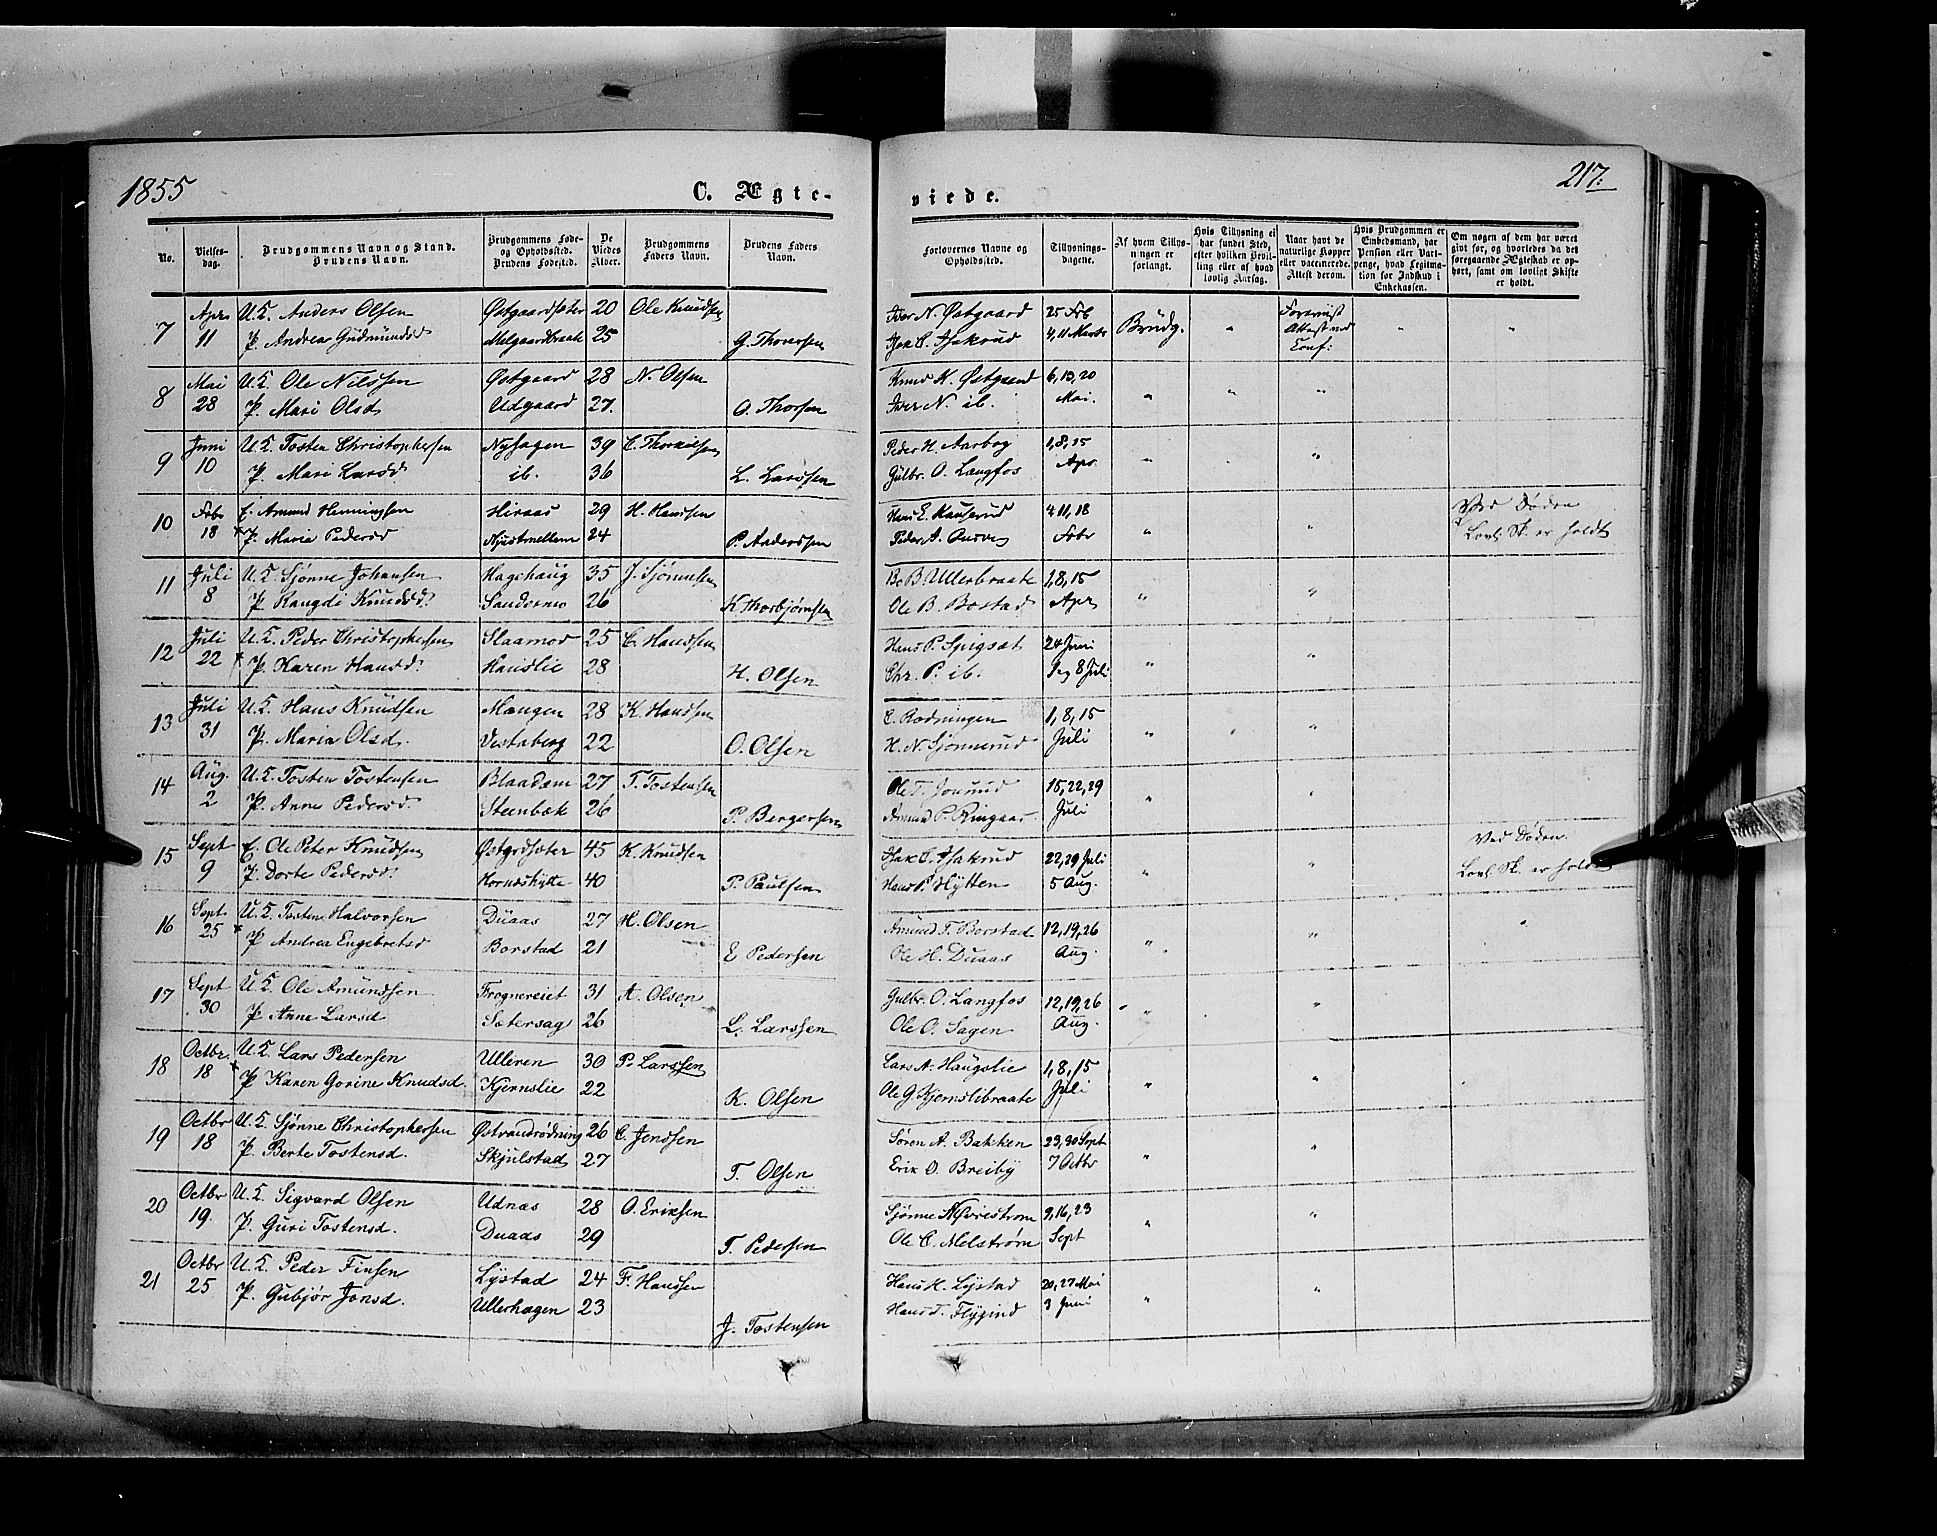 1855
C. Ægte-
viede.
217.
No.
Vielses-
dag.
Brudgommens Navn og Stand.
Brudens Navn.
Brudgommens Føde-
og Opholdssted.
Brudens Fødested.
De
Viedes
Alder.
Brudgommens
Faders Navn.
Brudens Faders
Navn.
Forlovernes Navne og
Opholdssted.
Tillysnings-
dagene.
Af hvem Tillys-
ningen er
forlangt.
Hvis Tillysning ei
har fundet Sted,
efter hvilken Bevil-
ling eller af hvad
lovlig Aarsag.
Naar havt de
naturlige Kopper
eller vaccinerede.
Attest derom.
Hvis Brudgommen er
Embedsmand, har
Pension eller Vart-
penge, hvad Legitima-
tion for Indskud i
Enkekassen.
Om nogen af dem har været
gift før, og hvorledes da det
foregaaende Ægteskab er op-
hørt, samt om lovligt Skifte
er holdt.
7 Apr. U.K. Anders Olsen Østgaardsæter 20 Ole Knudsen Iver N. Østgaard 25 Feb
11 P. Andrea Gudmundsd Melgaardbraate 25 G. Thorersen 4, 11 Marts Brudg. " Forevist
Attest ved
Conf: " "
8 Mai U.K. Ole Nilssen Østgaard 28 N. Olsen Knud K. Østgaard 6, 13, 20
28 P. Mari Olsd Udgaard 27. O. Thorsen Iver N. ib. Mai. " " "
9 Juni U.K. Tosten Christophersen Nyhagen 39 C. Thorkilsen Peder H. Aarbog 1, 8, 15
10 P. Mari Larsd ib. 36 L. Larssen Gulbr. O. Langfos Apr. " "
10 Febr E. Amund Henningsen Hiraas 29 H. Hansen 4, 11, 18 Ved Døden
18 * P. Maria Pedersd 24 P. Anderssen Febr " Lovl. Sk. er holdt
11 Juli U.K. Sjønne Johansen Hagehaug 35 J. Sjønnesen Bo B. Ullerbraate 1, 8, 15
8 P. Rangdi Knudsd. Sandermo 26 K Thorbjørnsen Ole B. Bostad Apr. " "
12 Juli U.K. Peder Christophersen Slaamod 25 C. Hansen Hans P. Spigset 24 Juni
22 * P. Karen Hansd. Hanslie 28 H. Olsen Chr. P. ib. 1 og 8 Juli " "
13 Juli U.K. Hans Knudsen Mangen 28 K. Hansen C. Rodningen 1, 8, 15
31 P. Maria Olsd. Vestaberg 22 O. Olsen H. N. Sjønnerud Juli " "
14 Aug. U.K. Tosten Tostensen Blaadam 27 T. Tostensen Ole T. 15, 22, 29
2 P. Anne Pedersd. Steenbæk 26 P. Bergersen Amund P. Ringaas Juli " "
15 Sept E. Ole Peter Knudsen Østgrdsæter 45 K. Knudsen 22, 29 Juli Ved Døden.
9 P. Dorte Pedersd. Hornæshytte 40 P. Paulsen Hans P. Hytten 5 Aug. " " Lovl. Sk. er holdt
16 Sept. U.K. Tosten Halvorsen Duaas 27 H. Olsen Amund T. Borstad 12, 19, 26 "
25 * P. Andrea Engebretsd Borstad 21 E Pedersen Ole H. Duaas Aug. " "
17 Sept U.K. Ole Amundsen Frognereiet 31 A. Olsen Gulbr. O. Langfos 12, 19, 26
30 P. Anne Larsd Sætersag 26 L. Larssen Ole O. Sagen Aug. " "
18 Octbr. U.K. Lars Pedersen Ulleren 30 P. Larssen Lars A. Haugslie 1, 8, 15
18 * P. Karen Gorine Knudsd. Kjernslie 22 K. Olsen Ole G. Kjernslibraate Juli " "
19 Octbr U.K. Sjønne Christophersen Østvandrødning 26 C. Jenssen Søren A. Bakken 23, 30 Sept
18 P. Berte Tostensd. Skjulstad 27 T. Olsen Erik O. Breiby 7 Octbr " "
20 Octbr U.K. Sigvard Olsen Udnæs 28 O. Eriksen Sjønne N. 9, 16, 23
19. P. Guri Tostensd. Duaas 29 T. Pedersen Ole C. Melstrøm Sept " "
21 Octbr U.K. Peder Finsen Lystad 24 F. Hansen Hans H. Lystad 20, 27 Mai
25 P. Gubjør Jonsd. Ullerhagen 23 J. Tostensen Hans T. Flygind 3 Juni " "